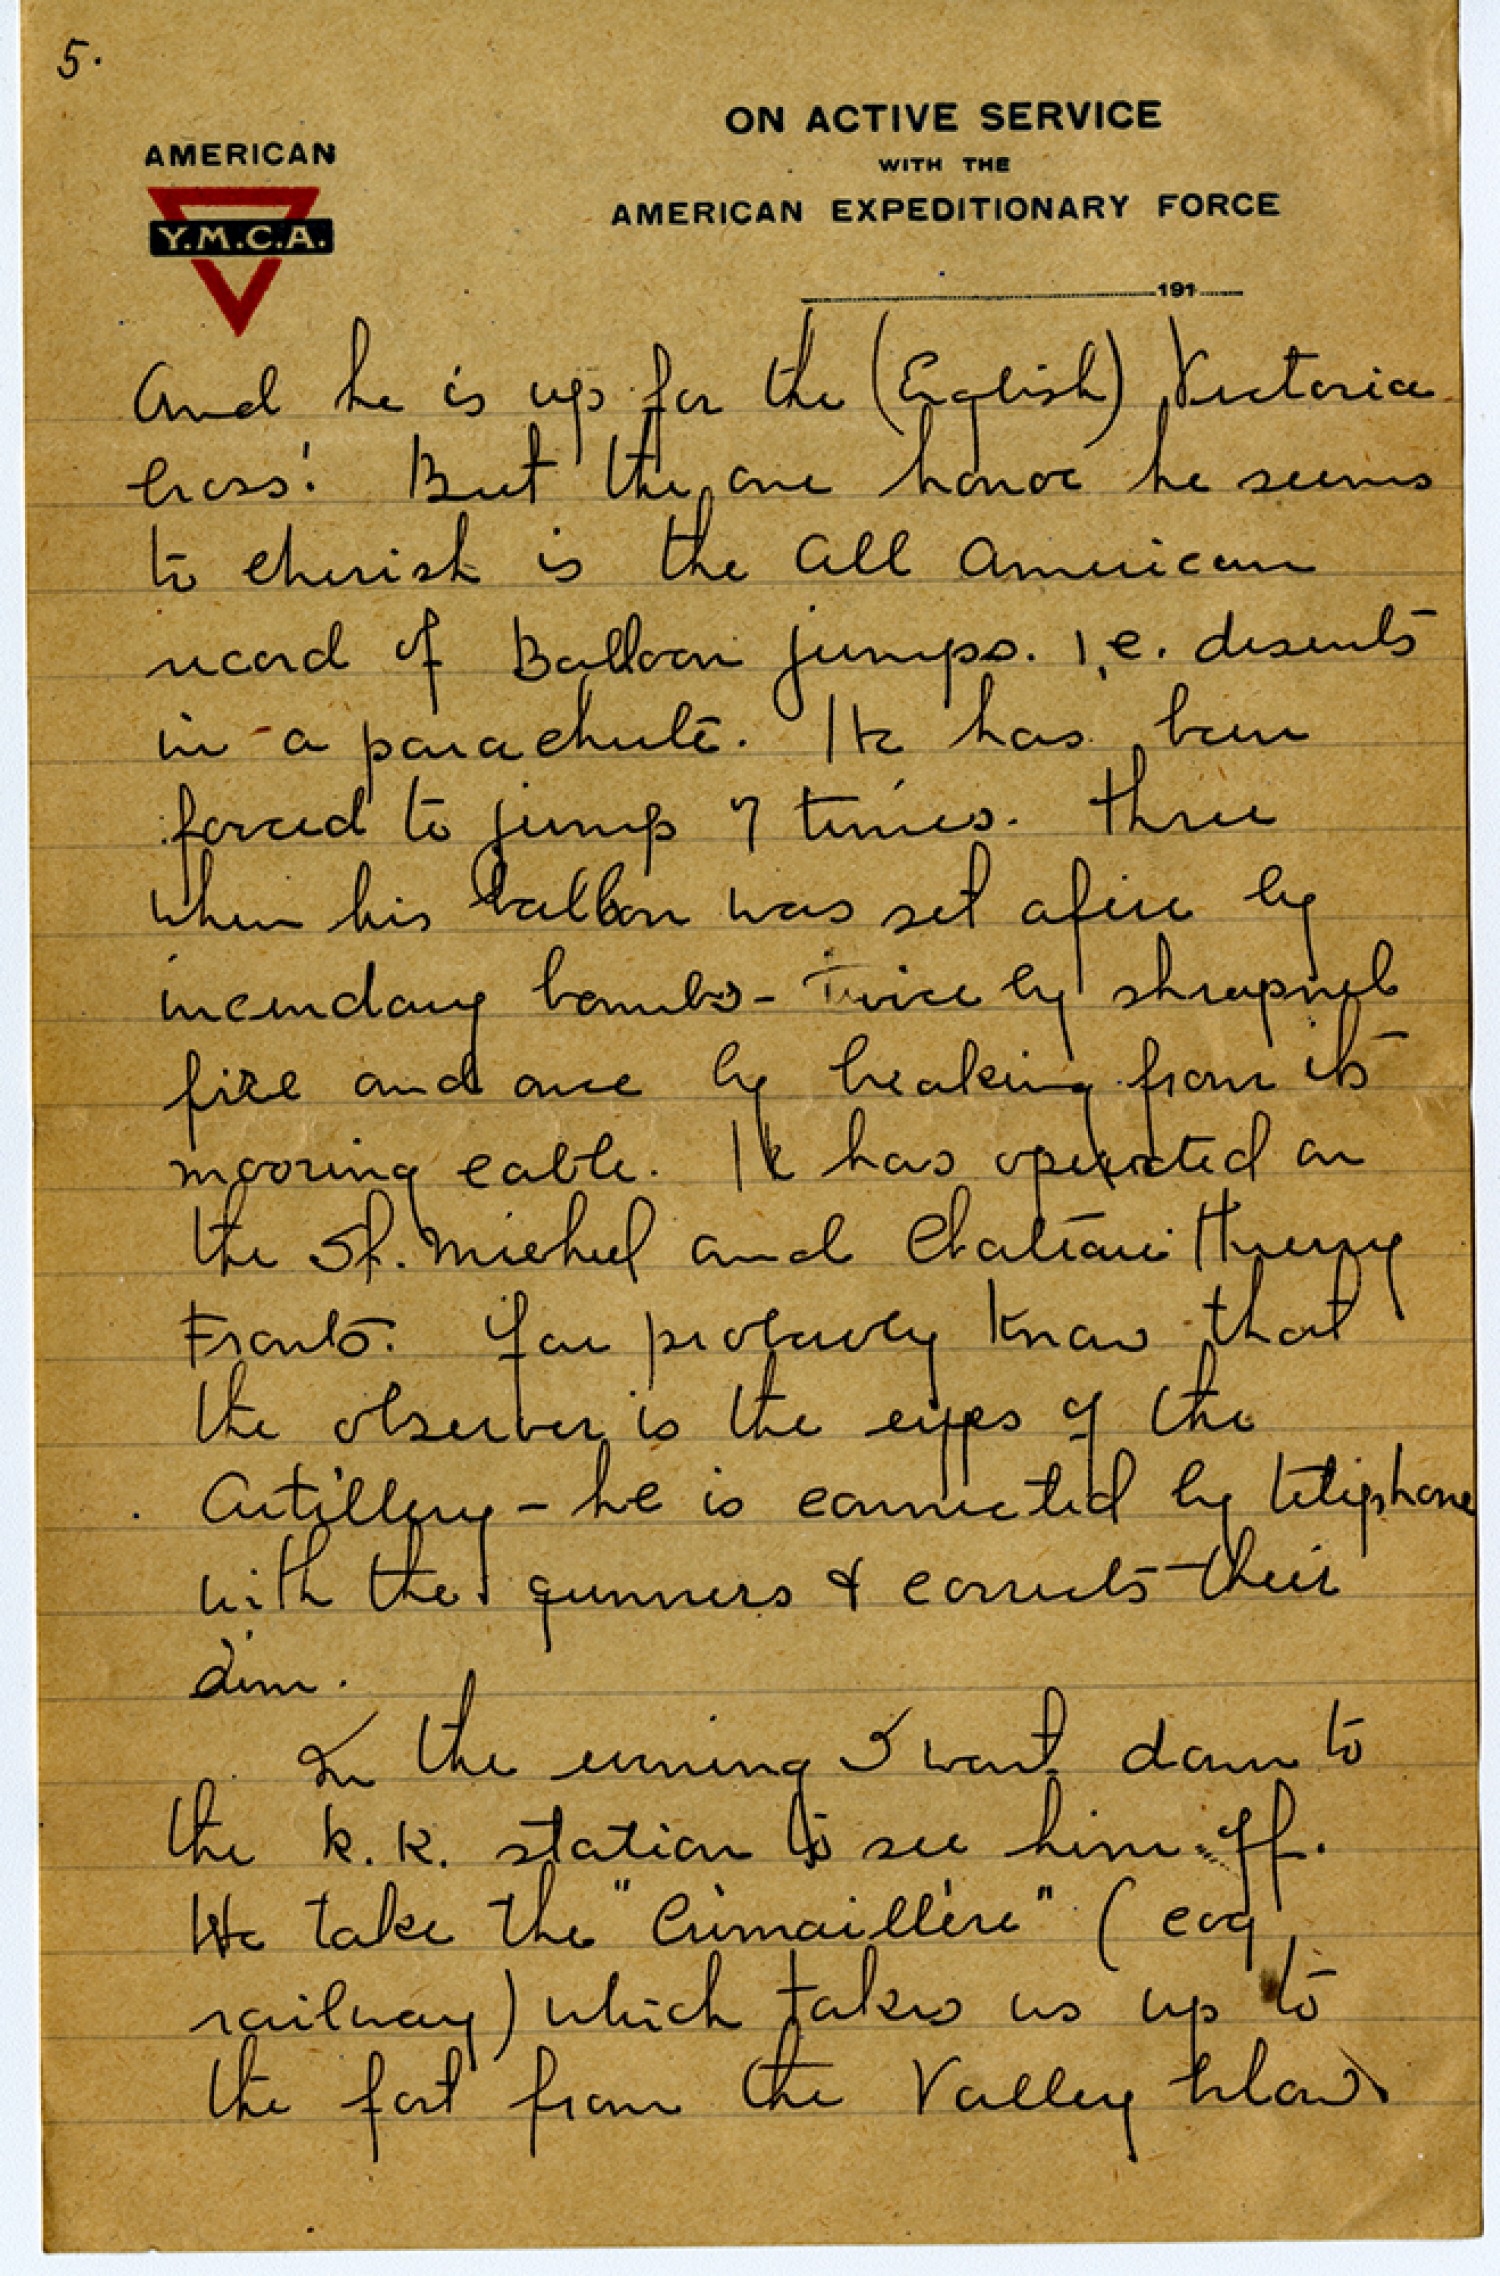 5.
ON ACTIVE SERVICE
WITH THE
AMERICAN EXPEDITIONARY FORCE
AMERICAN
Y.M.C.A.
191
And he is up for the (English) Victoria
Cross! But the one honor he seems
to cherish is the All American
record of Balloon jumps. i.e. desents
in a parachute. He has been
forced to jump 7 times. three
when his balloon was set afire by
incendary bombs - Twice by shrapnel
fire and once by breaking from its
mooring cable. He has operated on
the St. Michel and Chateau Thierry
Fronts. You probably know that
the observer is the eyes of the
Artillery - he is connected by telephone
with the gunners & corrects their
aim.
In the evening I went down to
the R.R. station to see him off.
We take the "Crimaillère" (cog
railway) which takes us up to
the fort from the Valley below